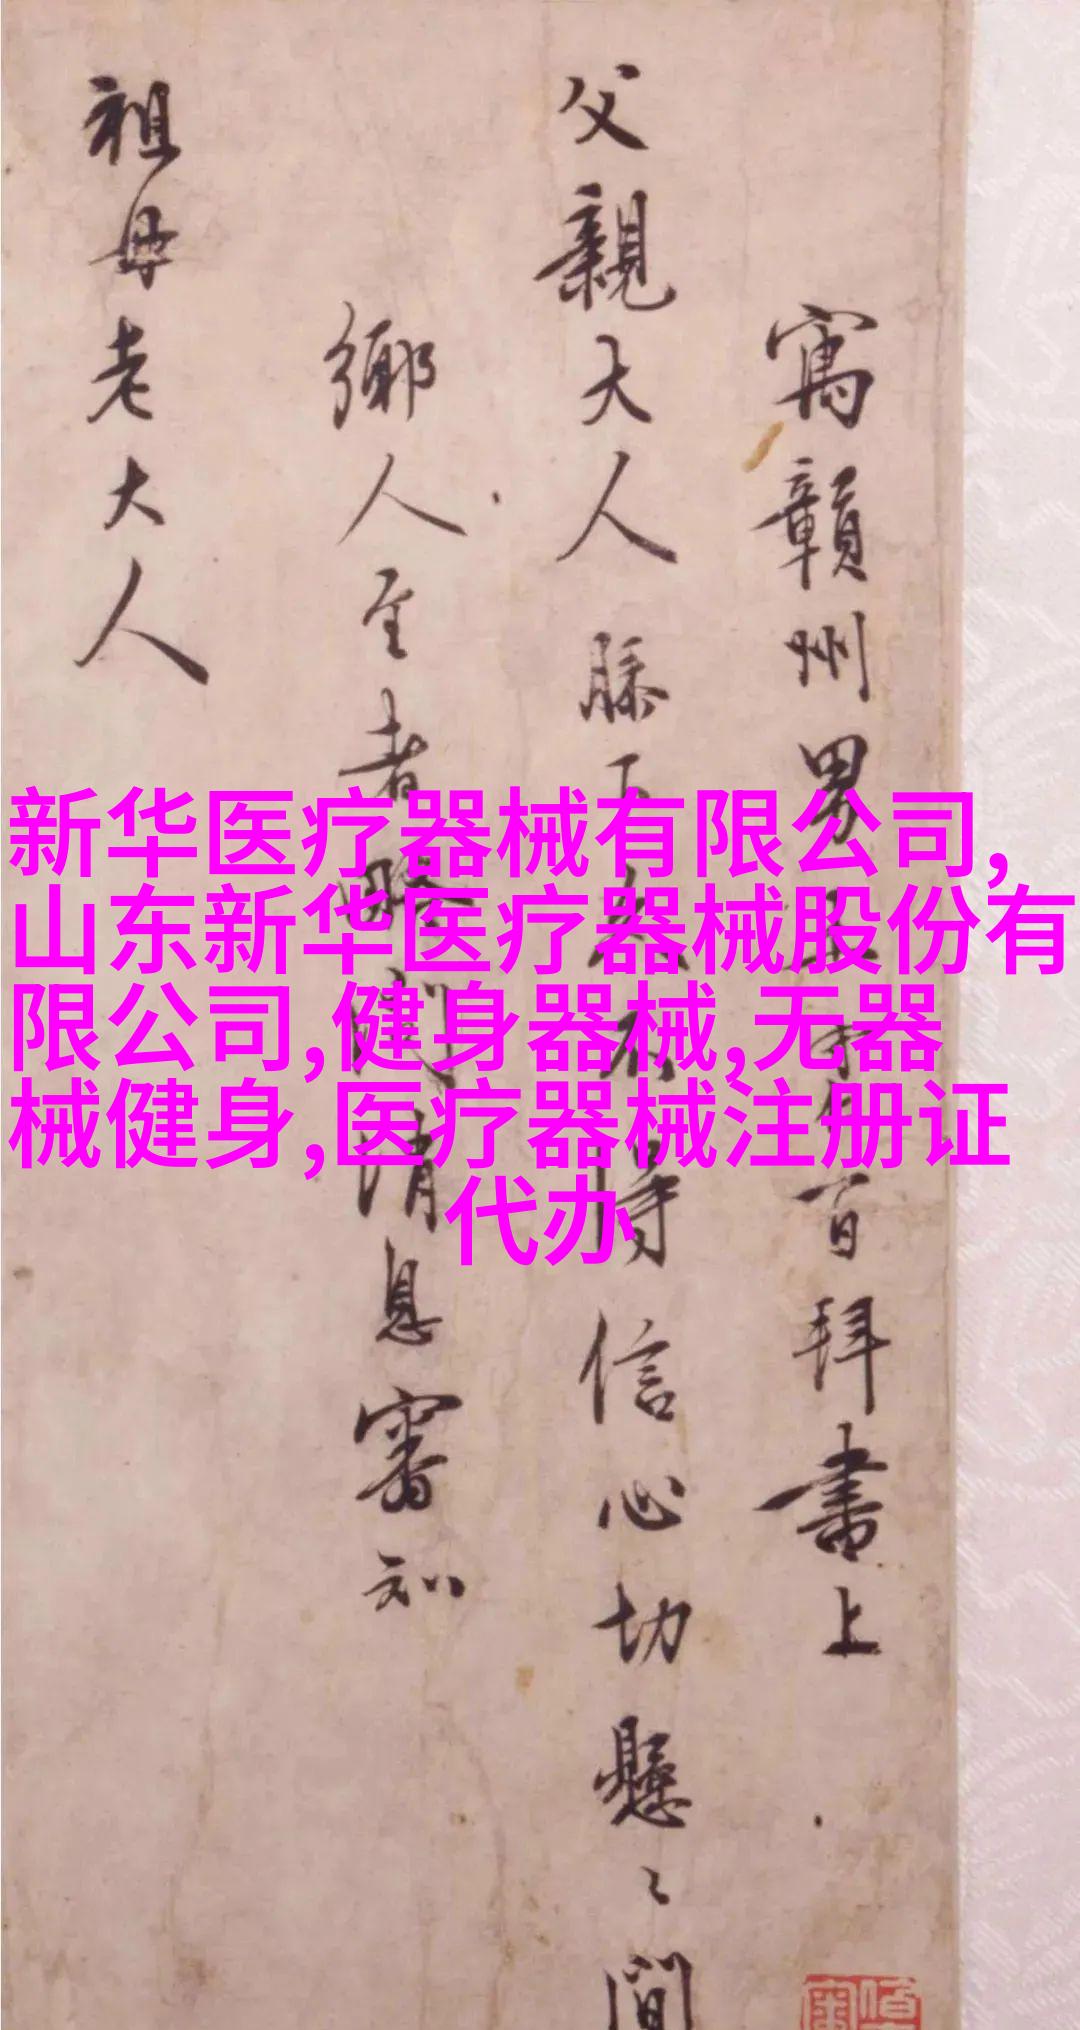 寓贑州男
百拜書上
父親大人膝下
得信心切懸〻間
鄉人至者
消息審知
祖母老大人
新华医疗器械有限公司,
山东新华医疗器械股份有
限公司,健身器械,无器
械健身,医疗器械注册证
代办